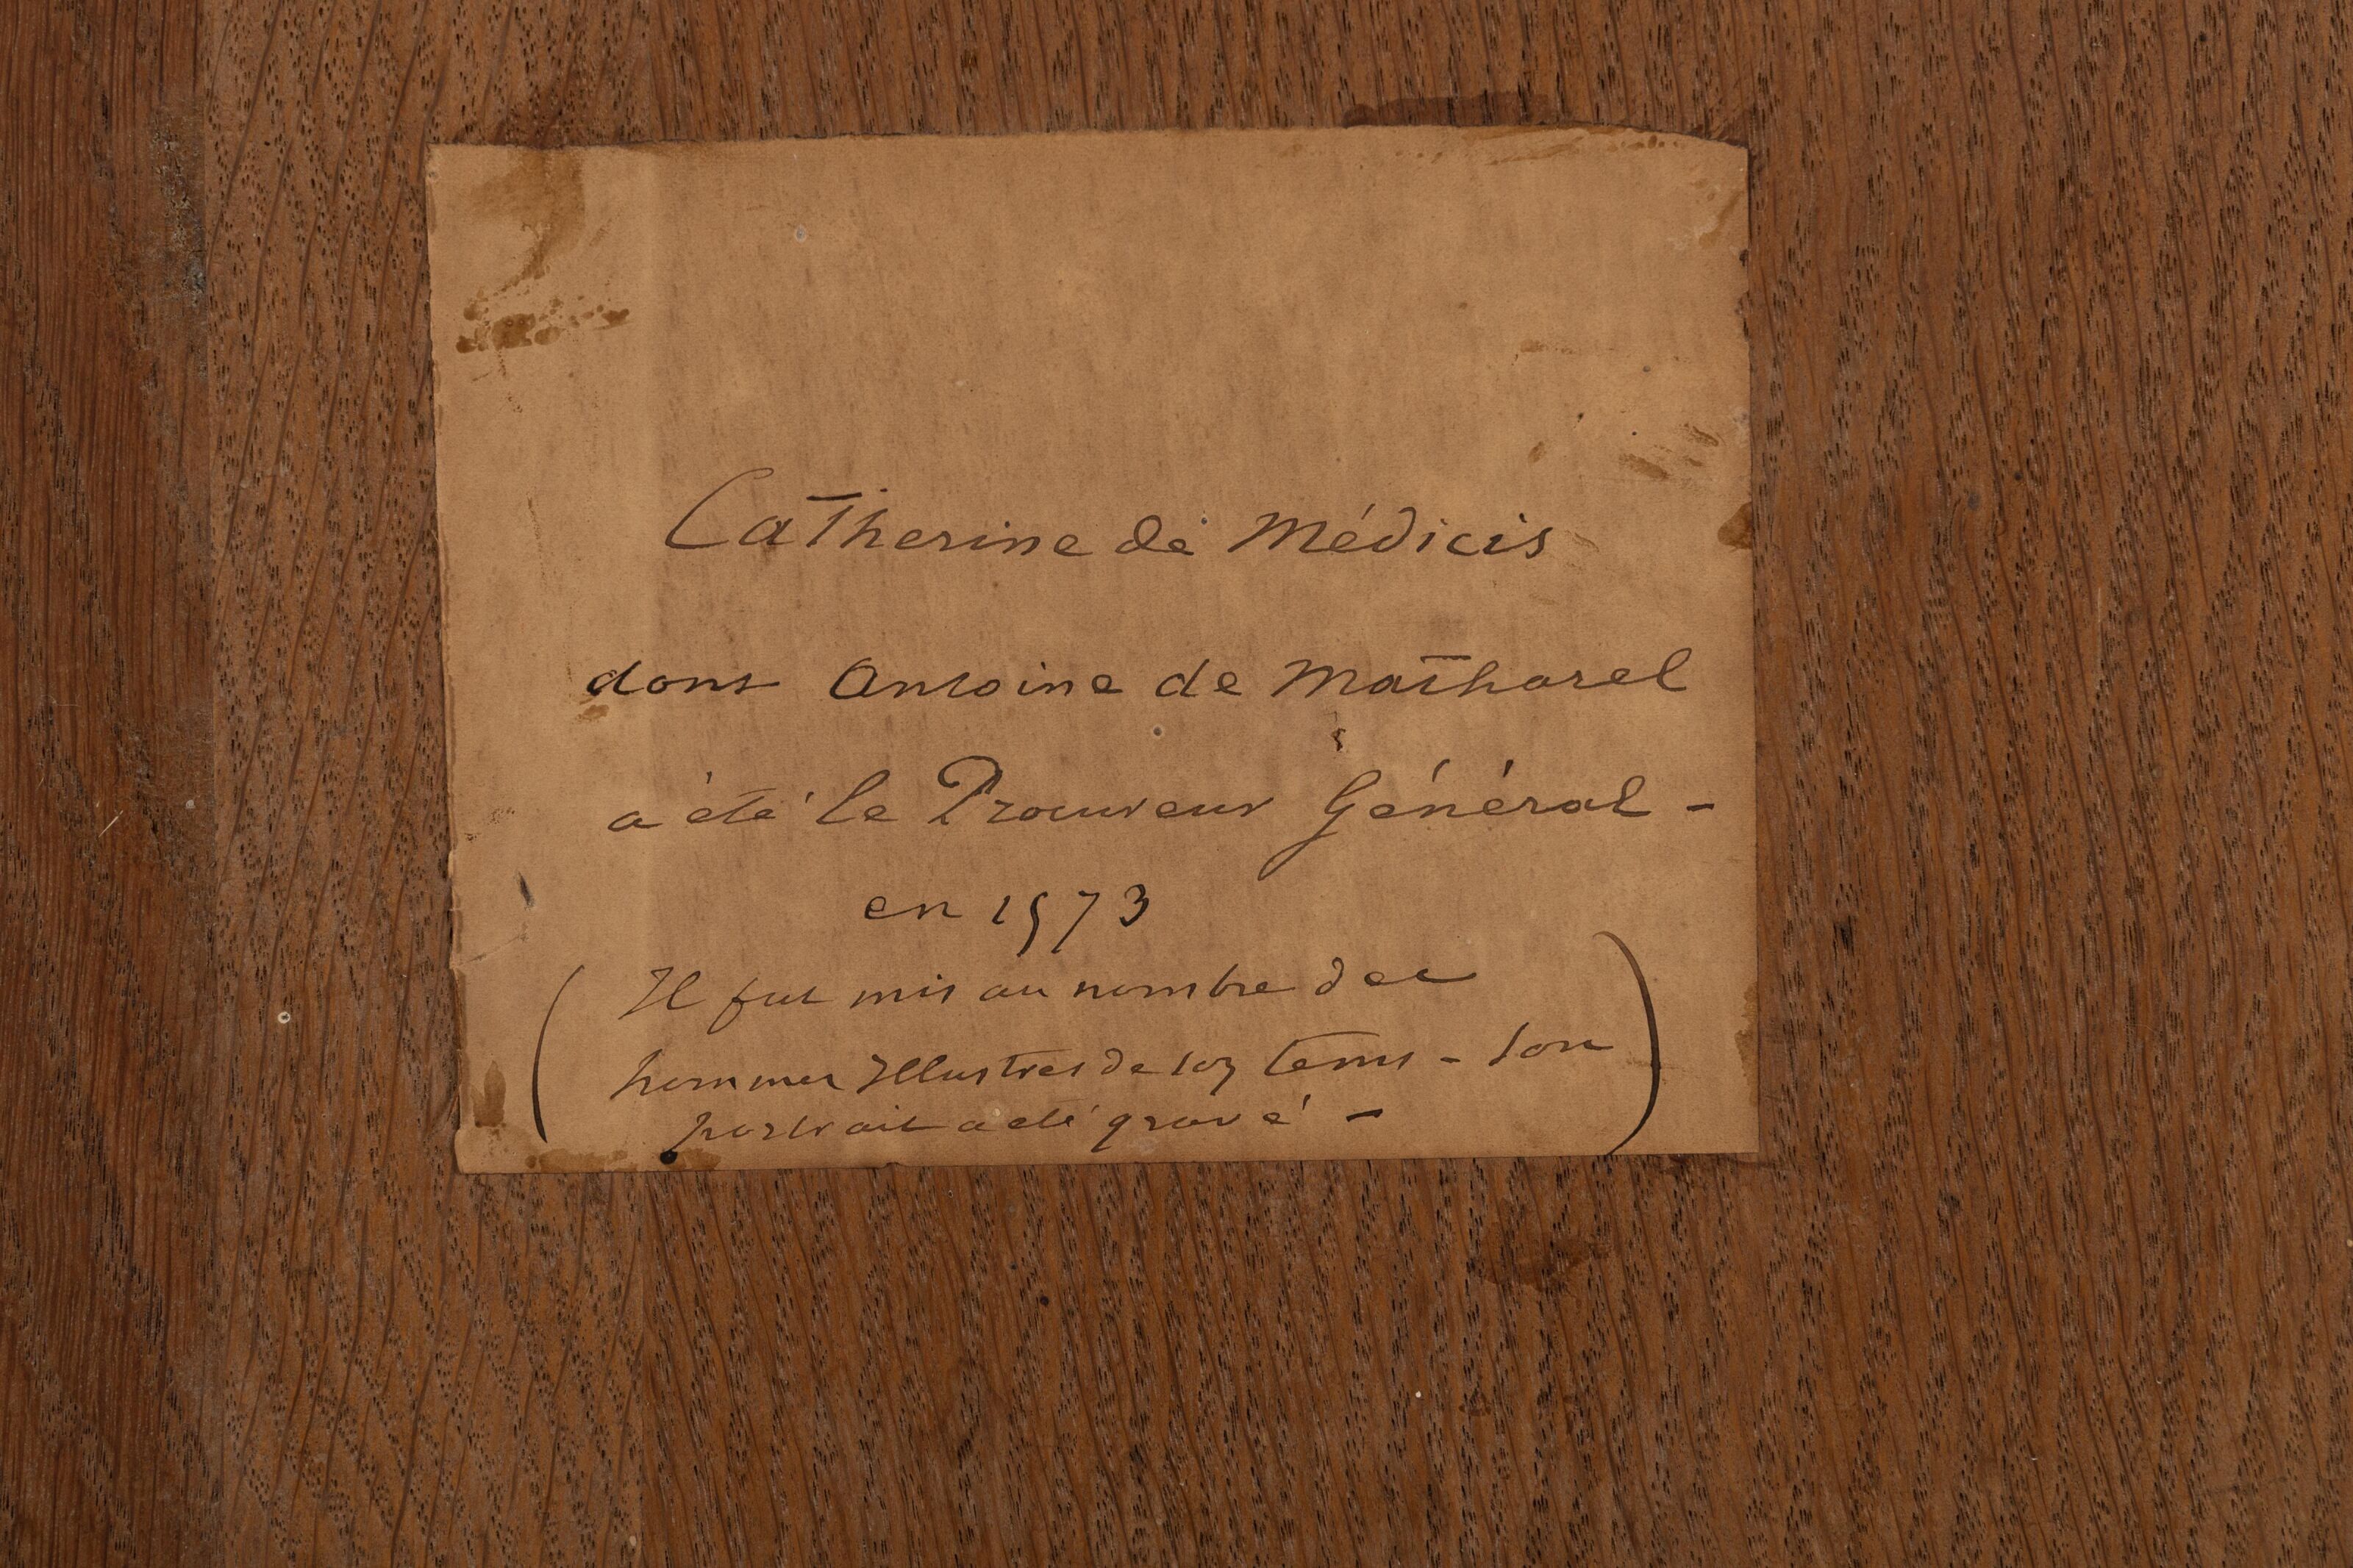 Catherine de Médicis
dont Antoine de Matharel
a été le Procureur Général -
en 1573
( Il fut mis au nombre des
hommes Illustres de son tems - son
portrait a été gravé - )